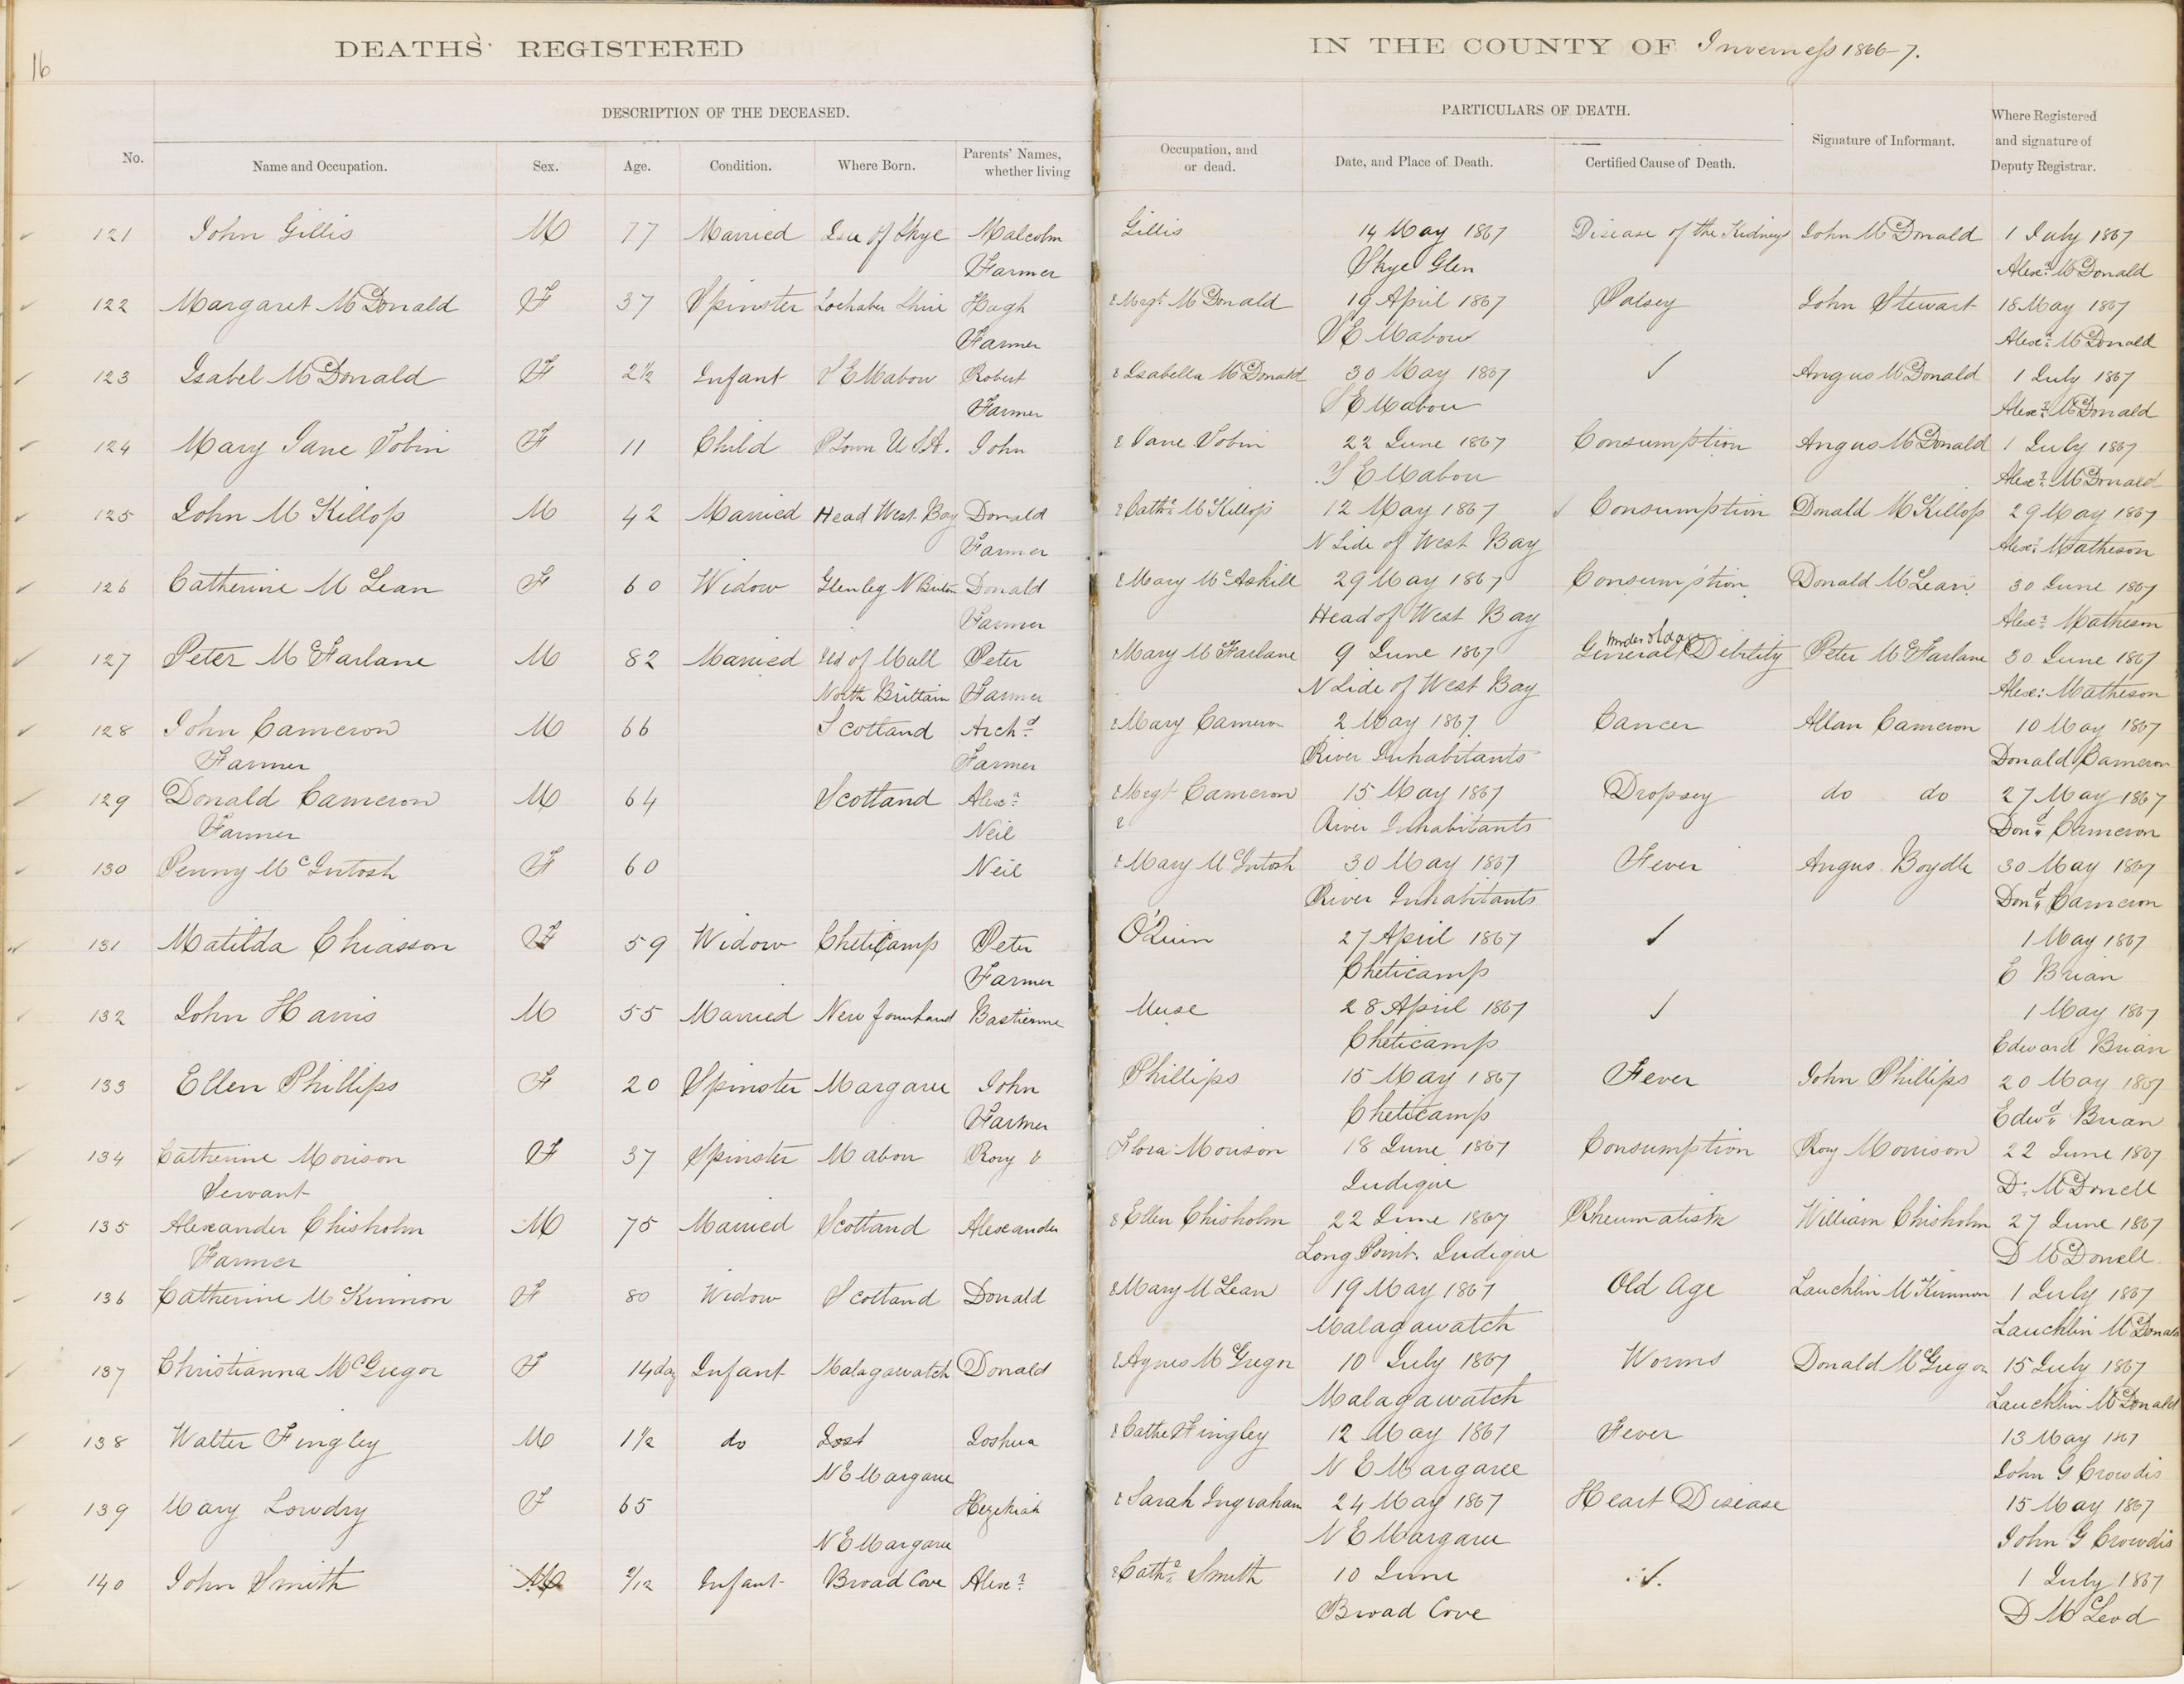 16
DEATHS REGISTERED IN THE COUNTY OF Inverness 1866-7.
DESCRIPTION OF THE DECEASED. PARTICULARS OF DEATH.
No. Name and Occupation. Sex. Age. Condition. Where Born. Parents' Names, whether living Occupation, and or dead. Date, and Place of Death. Certified Cause of Death. Signature of Informant. Where Registered and signature of Deputy Registrar.
121 John Gillis M 77 Married Isle of Skye Malcolm Gillis 14 May 1867 Disease of the Kidneys John McDonald 1 July 1867
Farmer Skye Glen Alexr McDonald
122 Margaret McDonald F 37 Spinster Lochaber Shire Hugh & Mrgt McDonald 19 April 1867 Palsey John Stewart 18 May 1867
Farmer S E Mabou Alexr McDonald
123 Isabel McDonald F 2½ Infant S E Mabou Robert & Isabella McDonald 30 May 1867 ✓ Angus McDonald 1 July 1867
Farmer S E Mabou Alexr McDonald
124 Mary Jane Tobin F 11 Child U S A. John & Jane Tobin 22 June 1867 Consumption Angus McDonald 1 July 1867
S E Mabou Alexr McDonald
125 John McKillop M 42 Married Head West Bay Donald & Cathe McKillop 12 May 1867 ✓ Consumption Donald McKillop 29 May 1867
Farmer N Side of West Bay Alexr Matheson
126 Catherine McLean F 60 Widow Glenleg N Briton Donald & Mary McAskill 29 May 1867 Consumption Donald McLean 30 June 1867
Farmer Head of West Bay Alexr Matheson
127 Peter McFarlane M 82 Married Isd of Mull Peter & Mary McFarlane 9 June 1867 General Debility Peter McFarlane 30 June 1867
North Brittain Farmer N Side of West Bay Alex: Matheson
128 John Cameron M 66 Scotland Archd & Mary Cameron 2 May 1867 Cancer Allan Cameron 10 May 1867
Farmer Farmer River Inhabitants Donald Cameron
129 Donald Cameron M 64 Scotland Alexr & Mrgt Cameron 15 May 1867 Dropsey do do 27 May 1867
Farmer Neil & River Inhabitants Dond Cameron
130 Penny McIntosh F 60 Neil & Mary McIntosh 30 May 1867 Fever Angus Boydle 30 May 1867
River Inhabitants Dond Cameron
131 Matilda Chiasson F 59 Widow Cheticamp Peter O'Quin 27 April 1867 ✓ 1 May 1867
Farmer Cheticamp E Brian
132 John Harris M 55 Married Newfounland Bastienne Muse 28 April 1867 ✓ 1 May 1867
Cheticamp Edward Brian
133 Ellen Phillips F 20 Spinster Margaree John Phillips 15 May 1867 Fever John Phillips 20 May 1867
Farmer Cheticamp Edwd Brian
134 Catherine Morison F 37 Spinster Mabou Rory & Flora Morison 18 June 1867 Consumption Rory Morrison 22 June 1867
Servant Judique D. McDonell
135 Alexander Chisholm M 75 Married Scotland Alexander & Ellen Chisholm 22 June 1867 Rheumatism William Chisholm 27 June 1867
Farmer Long Point. Judique D McDonell
136 Catherine McKinnon F 80 Widow Scotland Donald & Mary McLean 19 May 1867 Old Age Lauchlin McKinnon 1 July 1867
Malagawatch Lauchlin McDonald
137 Christianna McGregor F 14 day Infant Malagawatch Donald & Agnes McGregor 10 July 1867 Worms Donald McGregor 15 July 1867
Malagawatch Lauchlin McDonald
138 Walter Fingley M 1½ do Joshua & Cathe Fingley 12 May 1867 Fever 13 May 1867
N E Margaree N E Margaree John G Crowdis
139 Mary Lowdry F 65 Hezekiah & Sarah Ingraham 24 May 1867 Heart Disease 15 May 1867
N E Margaree N E Margaree John G Crowdis
140 John Smith M 9/12 Infant Broad Cove Alexr & Cathe Smith 10 June ✓ 1 July 1867
Broad Cove D McLeod